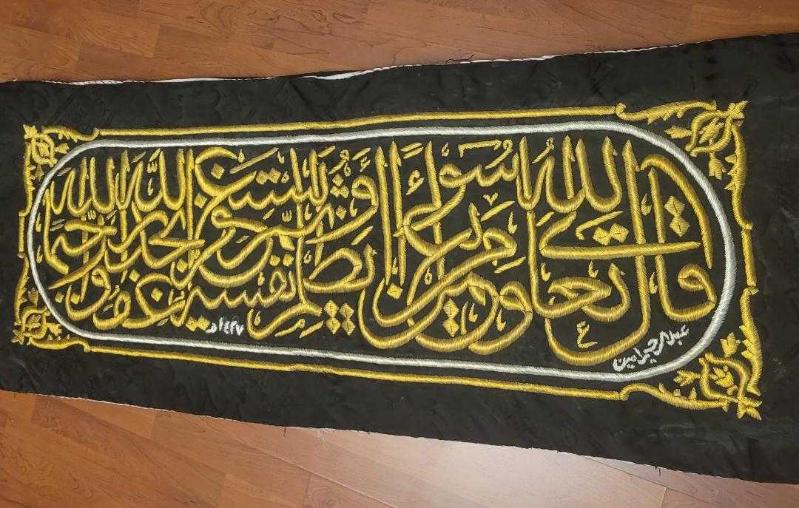 قال الله تعالى ومن يعمل سوءا أو يظلم نفسه ثم يستغفر الله يجد الله غفورا رحيما
عبد الرحيم امين
١٤٢٧هـ